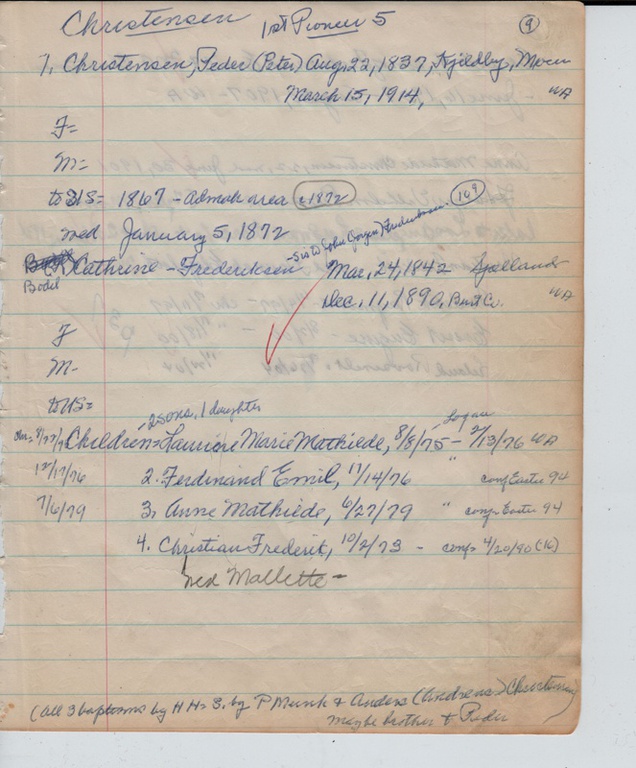 Christensen 1st Pioneer 5 (9)
7, Christensen, Peder (Peter) Aug. 22, 1837, Kjeldby, Moen
March 15, 1914, WA
F=
M=
to US= 1867 - Admah area c1872
wed January 5, 1872
- Sis to John (Jorgen) Frederiksen 169
Cathrine - Frederiksen, Mar. 24, 1842 Sjelland
Bodil Dec. 11, 1890, Burt Co. WA
F
M-
to US=
2 sons, 1 daughter Logan
Children= Marie Mathiede, 8/8/75 - 2/13/76 WA
12/17/76 2. Ferdinand Emil, 11/14/76 " conf Easter 94
7/6/79 3, Anne Mathiede, 6/27/79 " conf Easter 94
4. Christian Frederik, 10/2/73 - conf 4/20/90 (16)
wed Mallette -
(All 3 baptisms by H H= S. by P Munk & Anders (Andreas) Christensen)
maybe brother to Peder